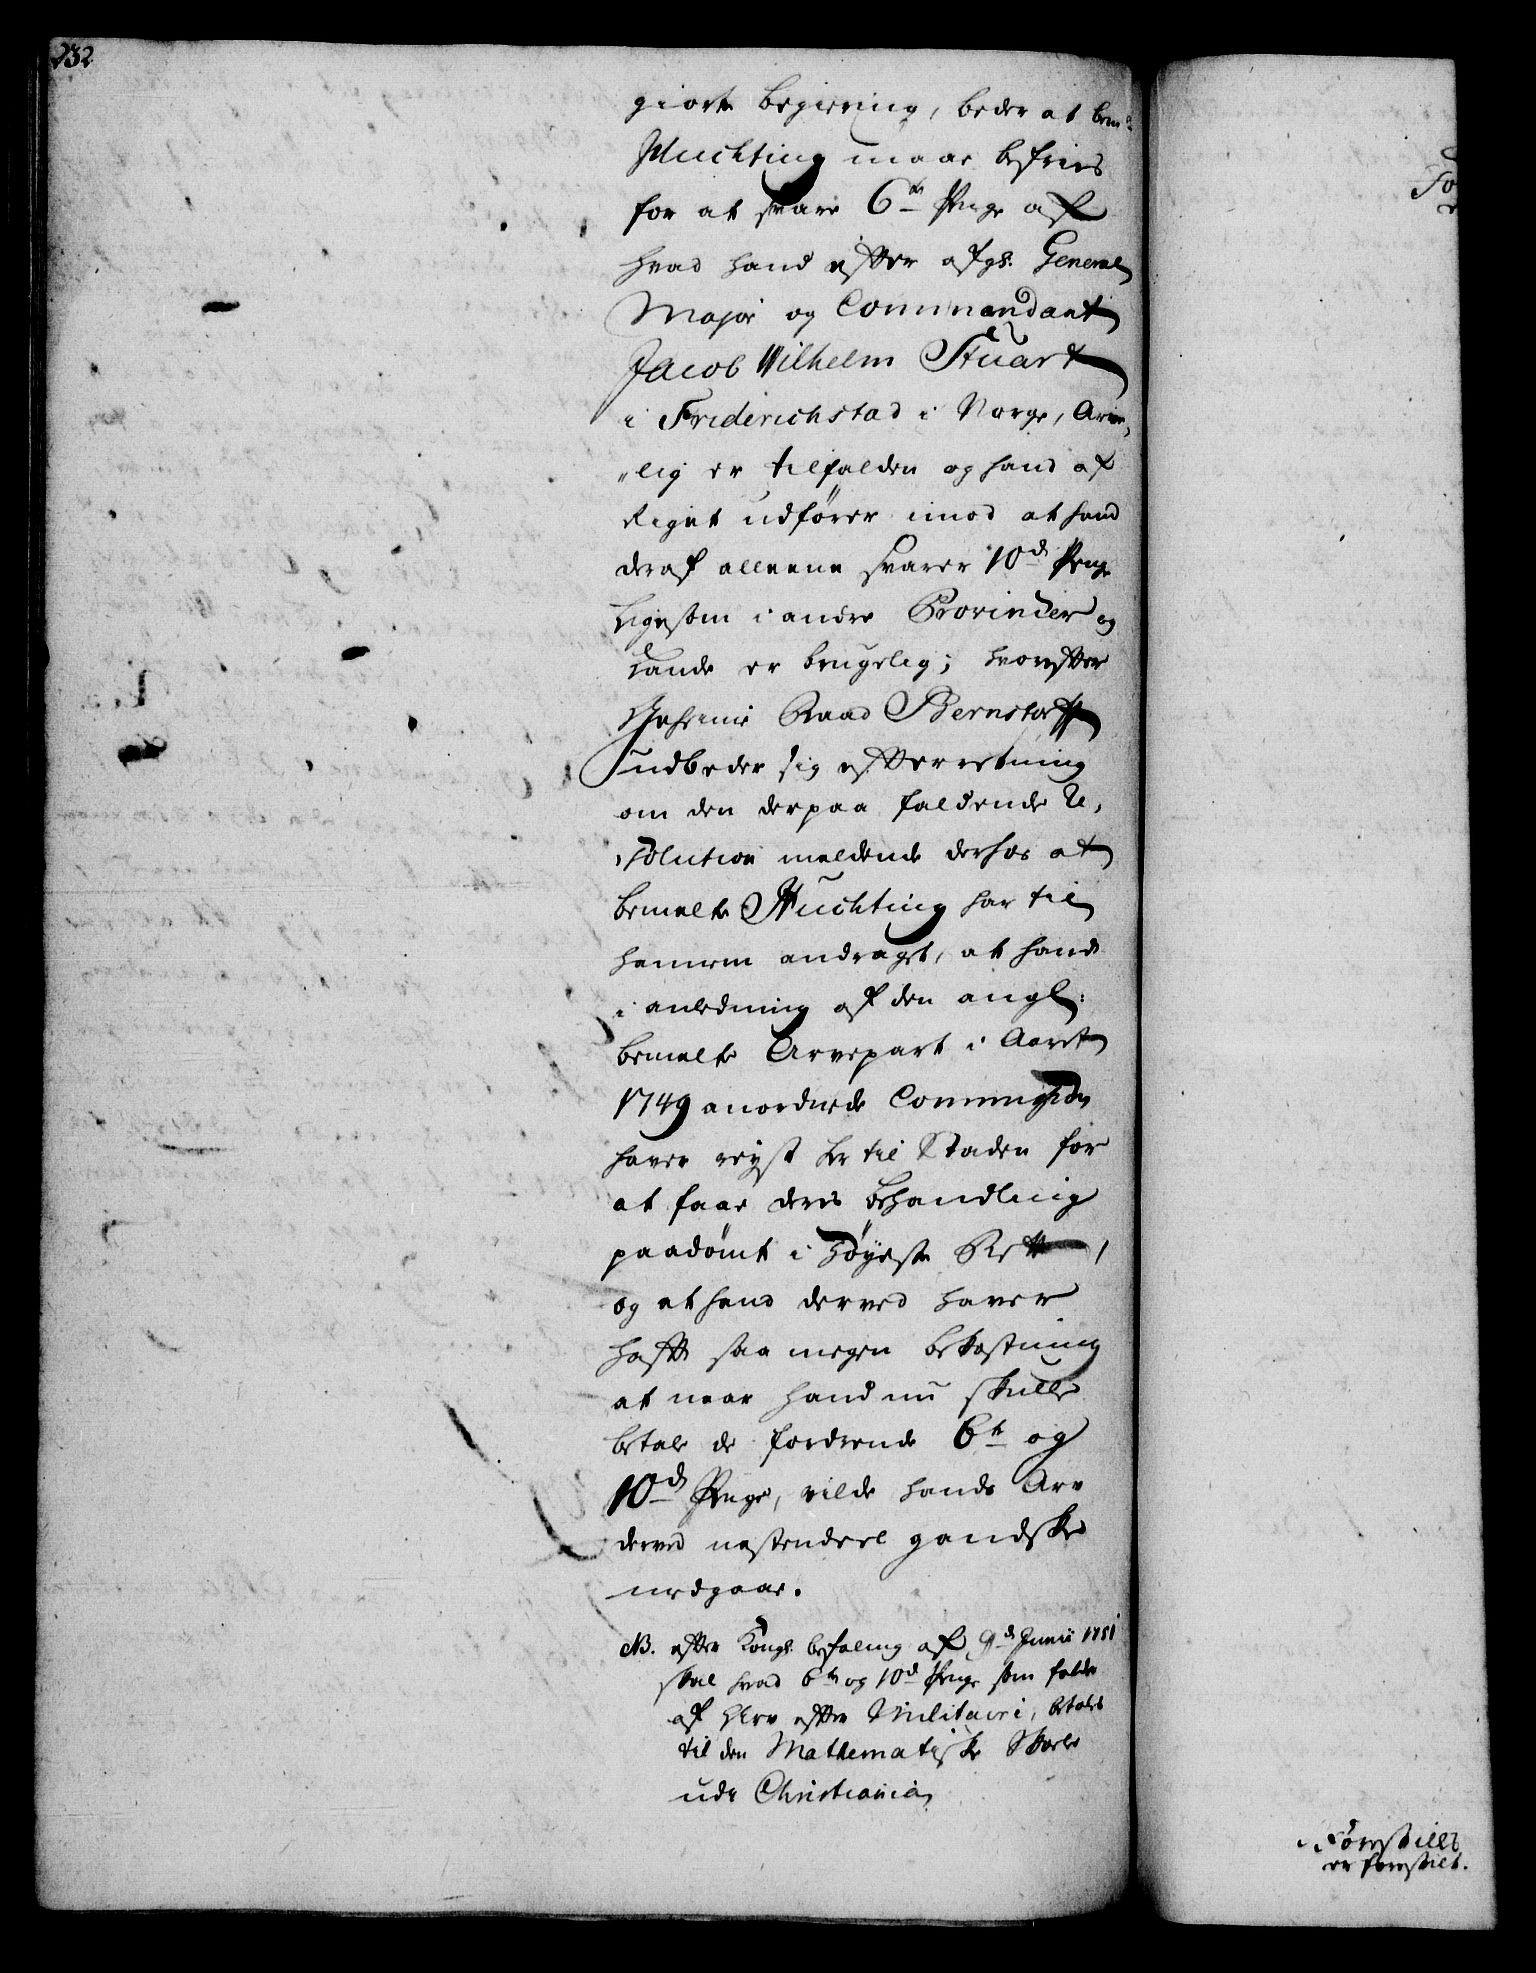 232
giorte begiering, beder at bemte
Huchting maae befries
for at svare 6te Penge af
hvad hand efter afgl. General
Major og Commandant
Jacob Wilhelm Stuart
i Friderichstad i Norge, Arve,
„lig er tilfalden og hand af
Riget udfører imod at hand
deraf alleene svarer 10de Penge
ligesom i andre Provincer og
Lande er brugelig; hvorefter
Geheime Raad Bernstorff
udbeder sig efterretning
om den derpaa faldende Re,
,solution meldende derhos at
bemelte Huchting har til
hannem andraget, at hand
i anledning af den angl:
bemelte Arvepart i Aaret
1749 anordnede Commission
haver reyst her til Staden for
at faae deres behandling
paadømt i Høyeste Rett,
og at hand derved haver
hafft saa megen bekostning
at naar hand nu skulle
betale de fordrende 6te og
10de Penge, vilde hands Arv
derved mestendeel gandske
medgaae.
NB. efter Kongl. befaling af 9de Junii 1751
skal hvad 6te og 10de Penge som falde
af Arv efter Militaire, betales
til den Mathematiske Skole
udi Christiania
Fo
Forestilles
er forestilt.